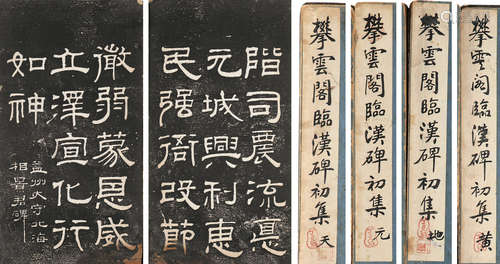 階司農流惪
元城興利惠
民强衙改節
微弱蒙恩威
立澤宣化行
如神
益州太守北海
相景君碑
攀雲閣臨漢碑初集 天
攀雲閣臨漢碑初集 元
攀雲閣臨漢碑初集 地
攀雲閣臨漢碑初集 黃